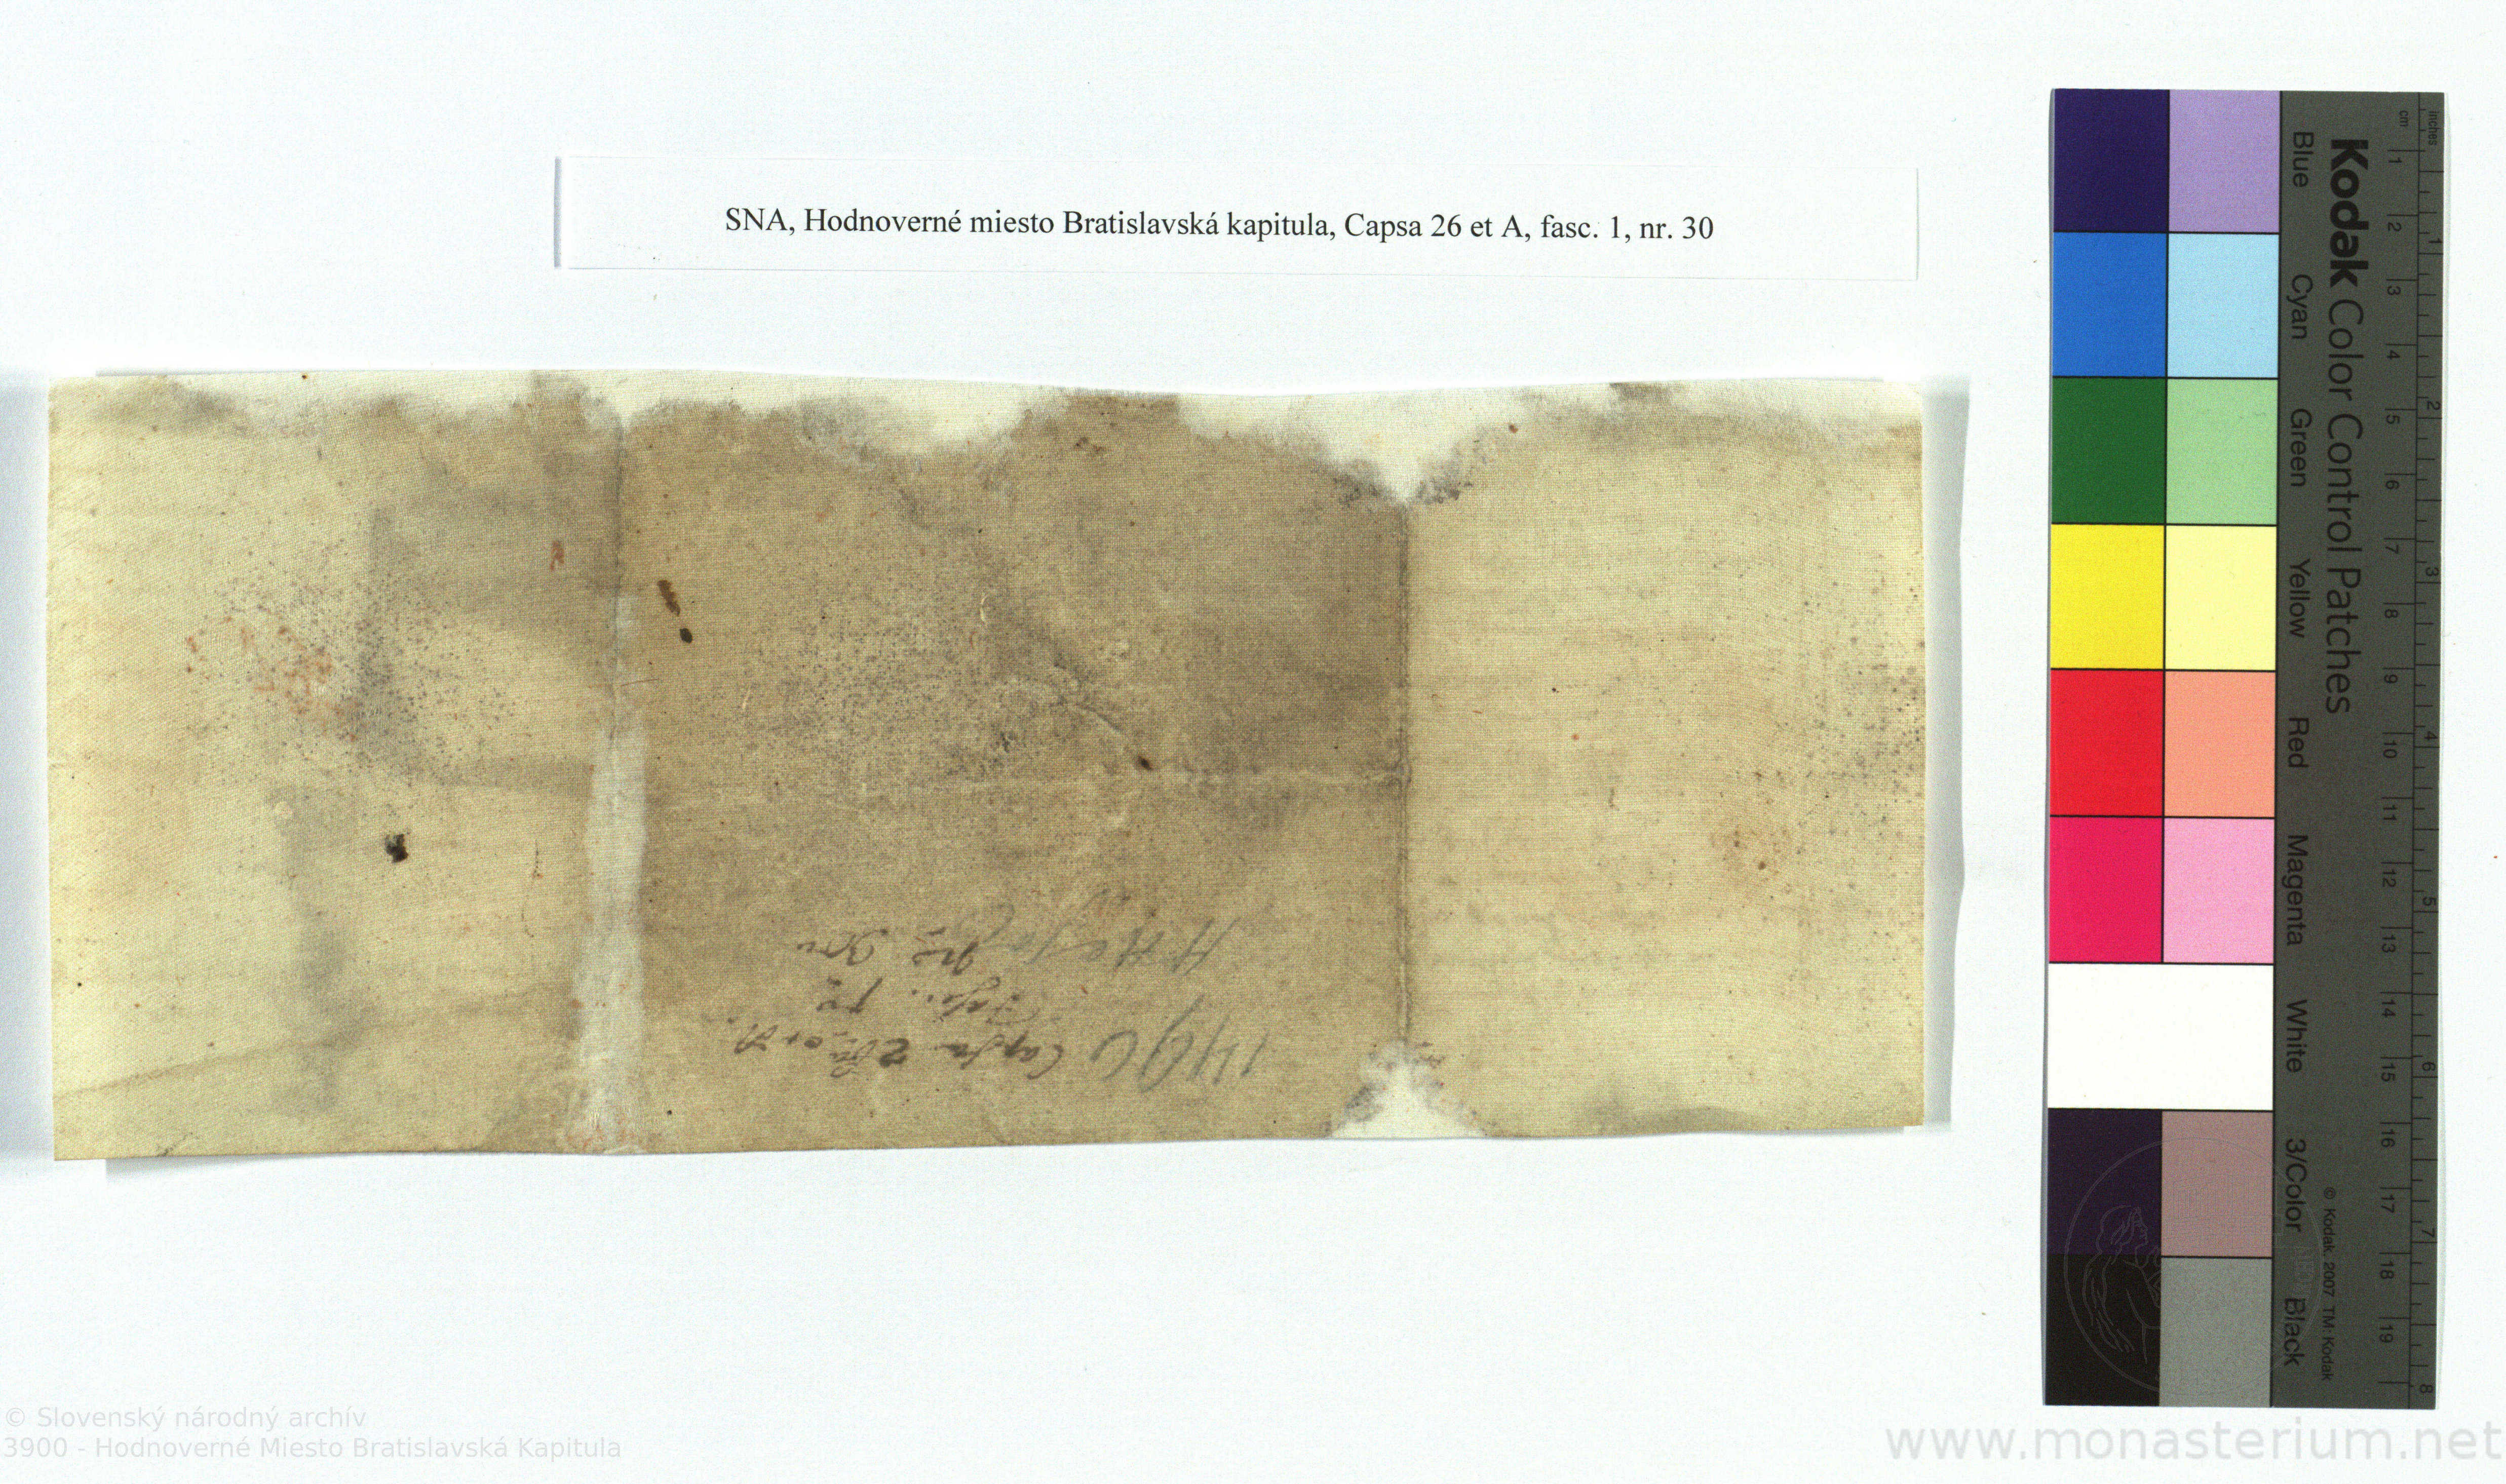 SNA, Hodnoverné miesto Bratislavská kapitula, Capsa 26 et A, fasc. 1, nr. 30
1490 Capsa 26 et A.
Fasc. 1
Nr 30
Kodak Color Control Patches
inches
cm
1 2 3 4 5 6 7 8 9 10 11 12 13 14 15 16 17 18 19
1 2 3 4 5 6 7 8
Blue Cyan Green Yellow Red Magenta White 3/Color Black
© Kodak, 2007 TM: Kodak
© Slovenský národný archív
3900 - Hodnoverné Miesto Bratislavská Kapitula
www.monasterium.net